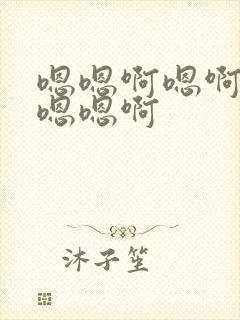 嗯嗯啊嗯啊
嗯嗯啊
沐子笙